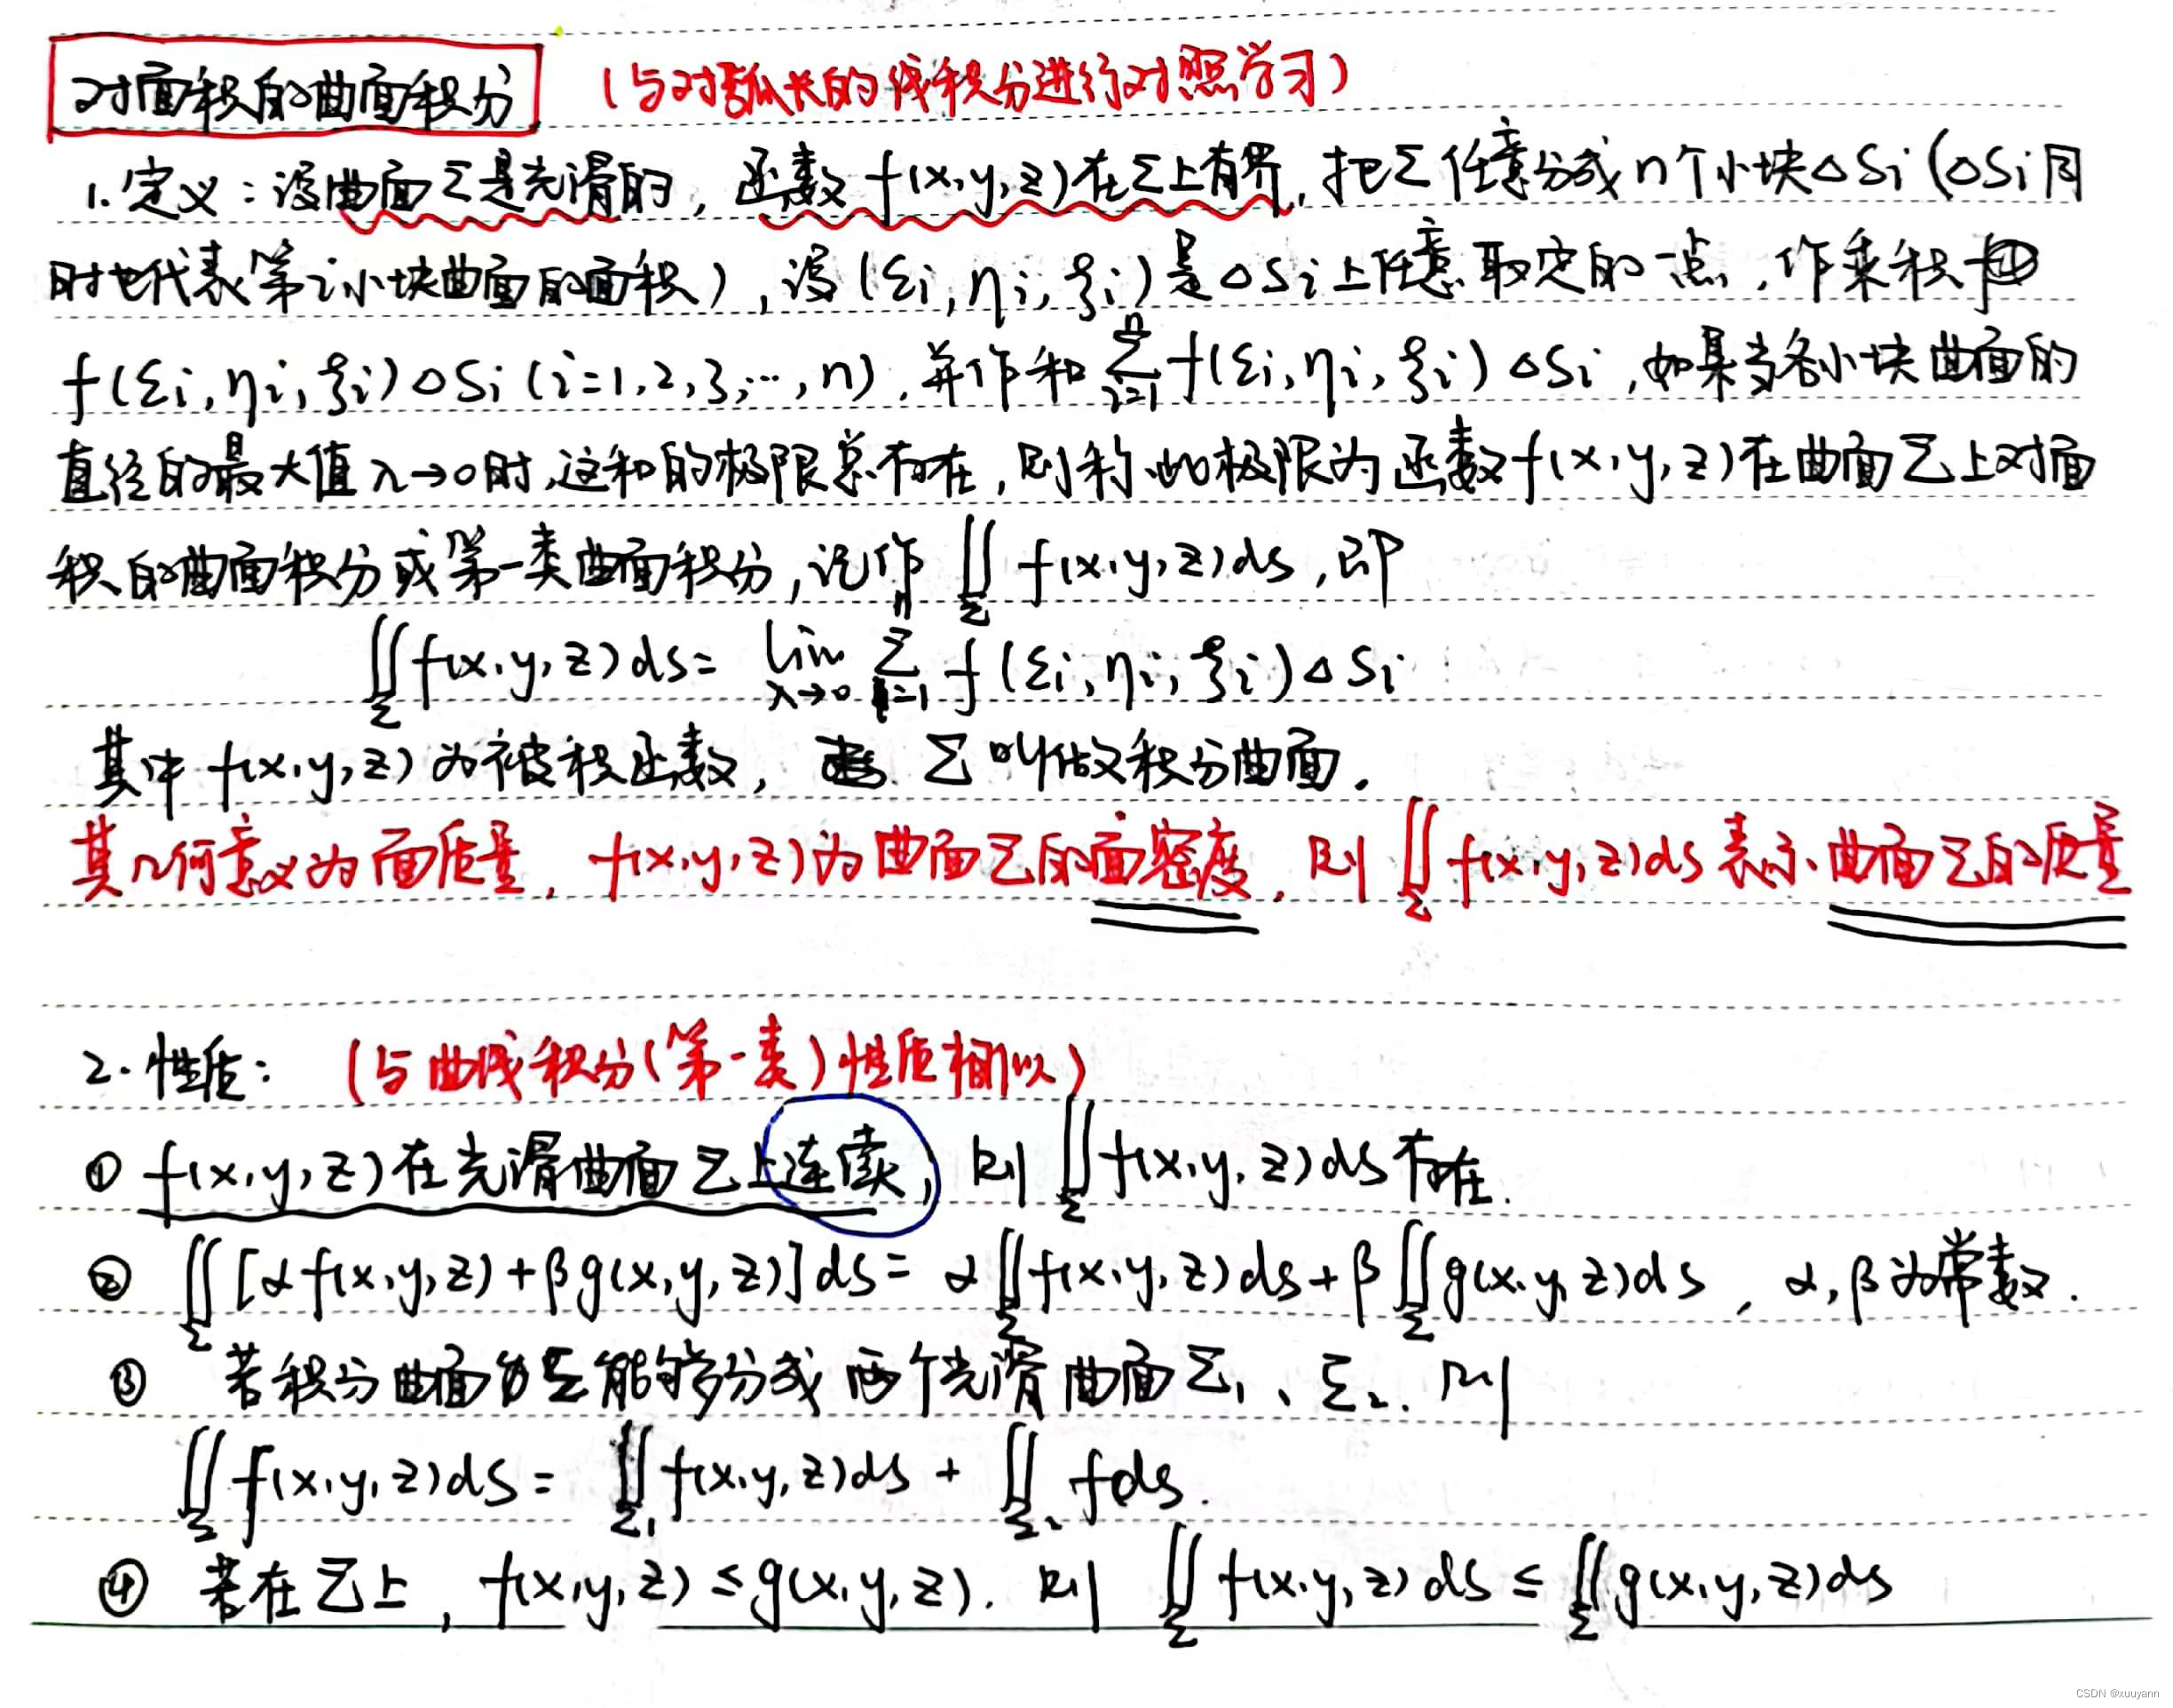 对面积的曲面积分 (与对弧长的线积分进行对照学习)
1. 定义：设曲面Σ是光滑的，函数 f(x,y,z)在Σ上有界，把Σ任意分成n个小块ΔSi (ΔSi同
时也代表第i小块曲面的面积)，设(ξi, ηi, ζi)是ΔSi上任意取定的一点，作乘积
f(ξi, ηi, ζi)ΔSi (i=1,2,3,…,n)，并作和 ∑_{i=1}^{n} f(ξi, ηi, ζi)ΔSi，如果当各小块曲面的
直径的最大值λ→0时,这和的极限总存在，则称此极限为函数f(x,y,z)在曲面Σ上对面
积的曲面积分或第一类曲面积分，记作 ∬_Σ f(x,y,z)ds，即
∬_Σ f(x,y,z)ds = lim_{λ→0} ∑_{i=1}^{n} f(ξi, ηi, ζi)ΔSi
其中 f(x,y,z) 为被积函数， Σ叫做积分曲面.
其几何意义为面质量，f(x,y,z)为曲面Σ的面密度，则 ∬_Σ f(x,y,z)ds 表示曲面Σ的质量
2. 性质： (与曲线积分(第一类)性质相似)
① f(x,y,z)在光滑曲面Σ上连续，则 ∬_Σ f(x,y,z)ds存在.
② ∬_Σ [αf(x,y,z)+βg(x,y,z)]ds = α∬_Σ f(x,y,z)ds + β∬_Σ g(x,y,z)ds，α,β为常数.
③ 若积分曲面Σ能够分成两个光滑曲面Σ₁、Σ₂. 则
∬_Σ f(x,y,z)ds = ∬_Σ₁ f(x,y,z)ds + ∬_Σ₂ fds.
④ 若在Σ上，f(x,y,z) ≤ g(x,y,z). 则 ∬_Σ f(x,y,z)ds ≤ ∬_Σ g(x,y,z)ds
CSDN @xuuyann